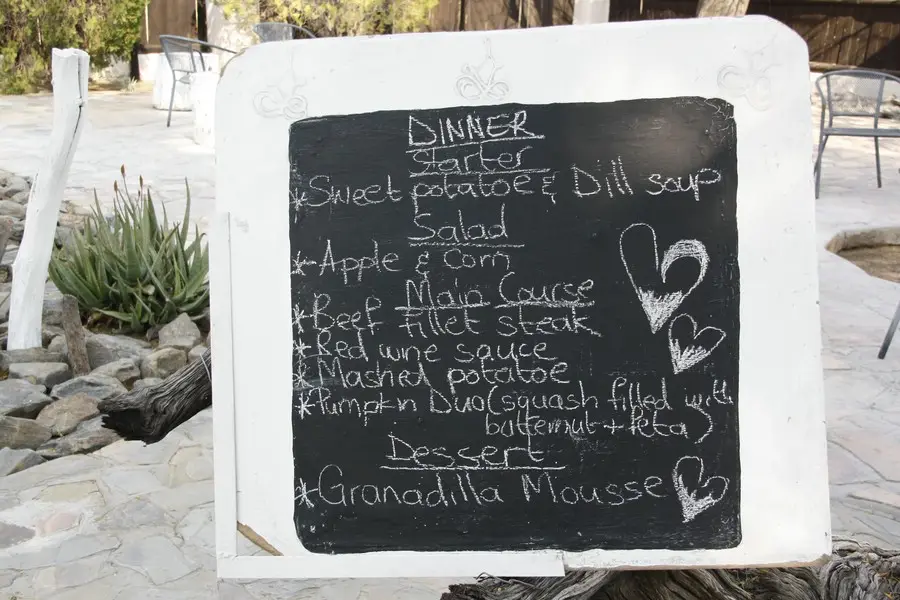 DINNER
Starter
*Sweet potatoe & Dill soup
Salad
*Apple & corn
Main Course
*Beef fillet steak
*Red wine sauce
*Mashed potatoe
*Pumpkin Duo (squash filled with
butternut + feta)
Dessert
*Granadilla Mousse